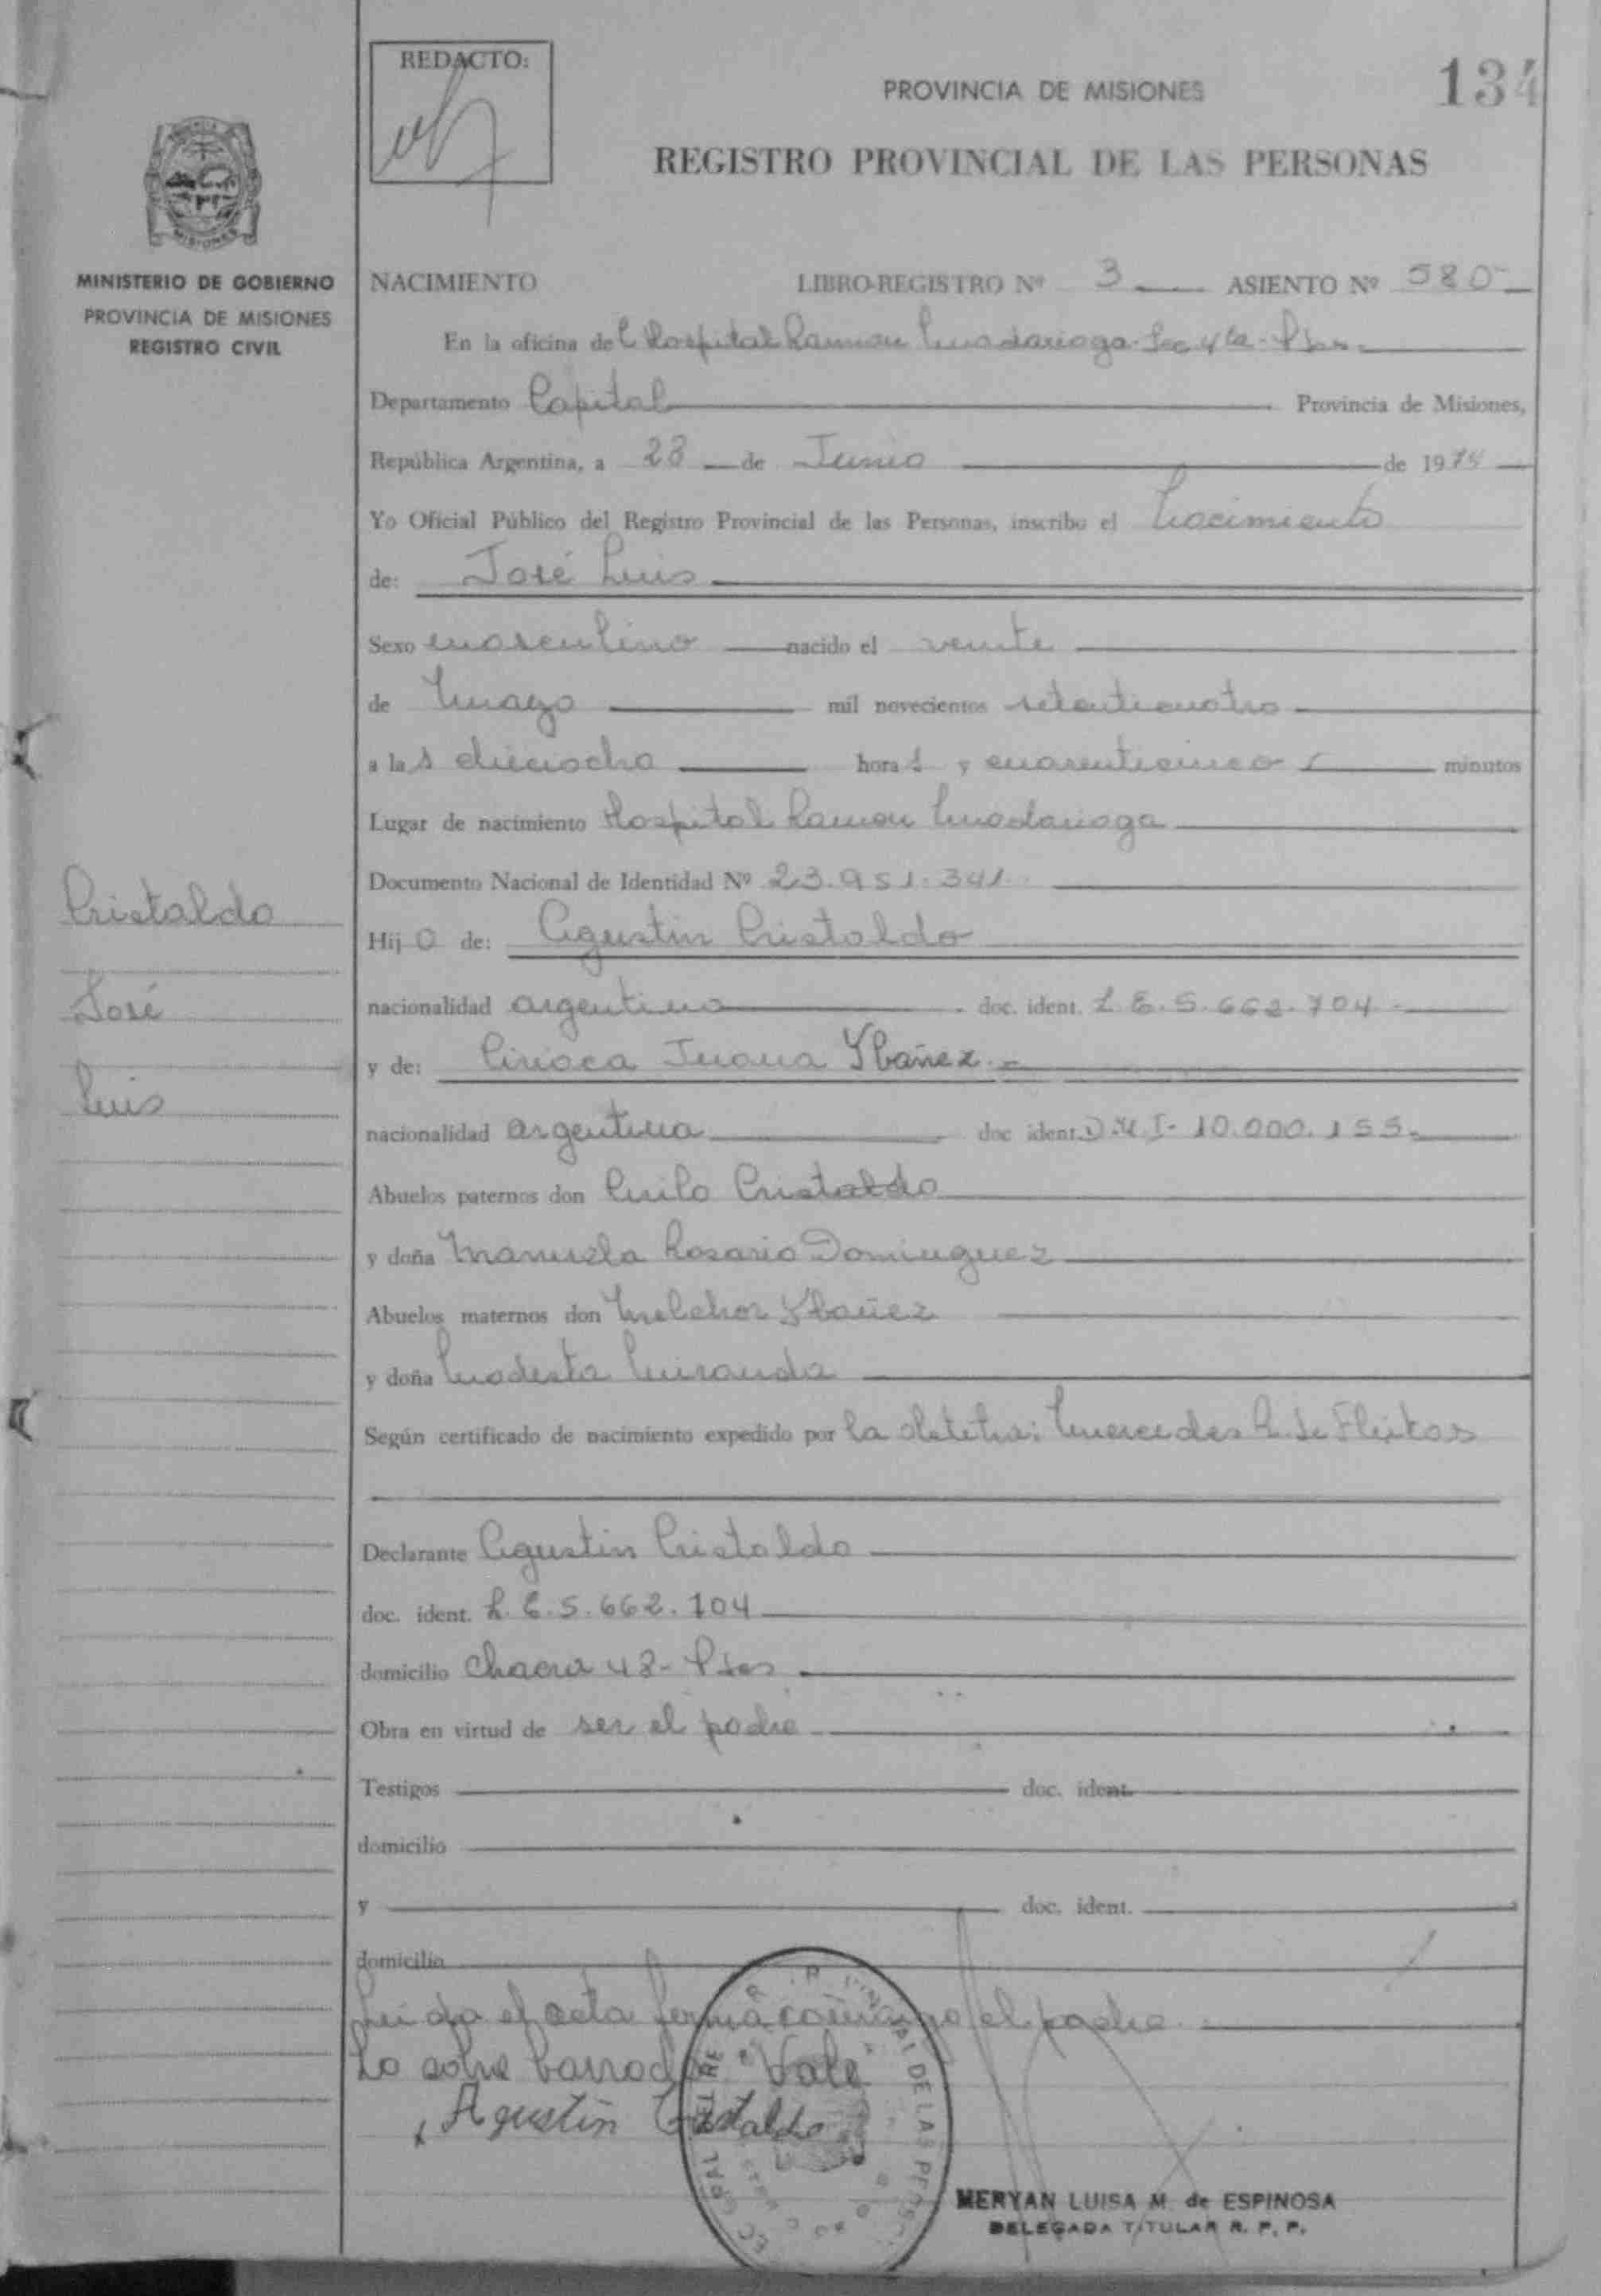 REDACTO:
PROVINCIA DE MISIONES
134
REGISTRO PROVINCIAL DE LAS PERSONAS
MISIONES
MINISTERIO DE GOBIERNO
PROVINCIA DE MISIONES
REGISTRO CIVIL
NACIMIENTO LIBRO-REGISTRO Nº 3 ASIENTO Nº 580
En la oficina del Hospital Ramon Madariaga - Sec 4ta -
Departamento Capital Provincia de Misiones,
República Argentina, a 28 de Junio de 1974
Yo Oficial Público del Registro Provincial de las Personas, inscribo el Nacimiento
de: José Luis
Sexo masculino nacido el veinte
de Mayo mil novecientos setenticuatro
a las dieciocho horas y cuarenticinco minutos
Lugar de nacimiento Hospital Ramon Madariaga
Documento Nacional de Identidad Nº 23.951.341
Cristaldo
Hijo de: Agustin Cristaldo
José
nacionalidad argentina doc. ident. L.E. 5.662.704
y de: Ciriaca Juana Ybañez
Luis
nacionalidad argentina doc ident. D.N.I- 10.000.155
Abuelos paternos don Cirilo Cristaldo
y doña Manuela Rosario Dominguez
Abuelos maternos don Melchor Ybañez
y doña Modesta Miranda
Según certificado de nacimiento expedido por la Mercedes R. de Fleitas
Declarante Agustin Cristaldo
doc. ident. L.E. 5.662.704
domicilio Chacra 48-
Obra en virtud de ser el padre
Testigos doc. ident.
domicilio
y doc. ident.
domicilio
Leida el acta firma conmigo el padre
Lo sobre borrado Vale
Agustin Cristaldo
MERYAN LUISA M. de ESPINOSA
DELEGADA TITULAR R. P. P.